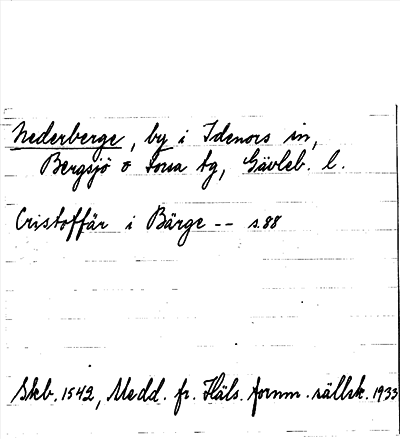 Nederberge, by i Idenors sn,
Bergsjö o Forsa tg, Gävleb. l.
Cristoffär i Bärge -- s.88
Skb. 1542, Medd. fr. Häls. fornm. sällsk. 1933